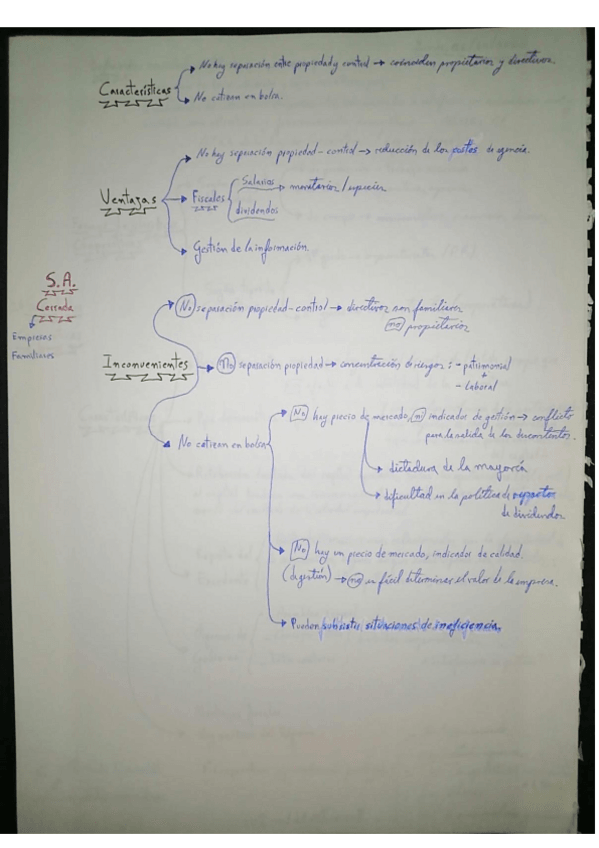 No hay separación entre propiedad y control → coinciden propietarios y directivos.
Características
No cotizan en bolsa.
No hay separación propiedad-control → reducción de los costos de agencia.
Ventajas
Fiscales
Salarios → monetarios/especies
dividendos
Gestión de la información.
S.A.
Cerrada
Empresas
Familiares
No separación propiedad-control → directivos son familiares
no propietarios
Inconvenientes
No separación propiedad → concentración de riesgos: - patrimonial
+
- Laboral
No cotizan en bolsa
No hay precio de mercado, ni indicadores de gestión → conflicto
para la salida de los descontentos.
dictadura de la mayoría
dificultad en la política de repartos
de dividendos
No hay un precio de mercado, indicadores de calidad.
(de gestión) → no es fácil determinar el valor de la empresa.
Pueden subsistir situaciones de ineficiencia.